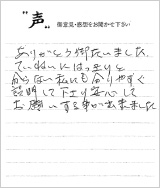 "声"
御意見・感想をお聞かせ下さい
ありがとう御座いました
ていねいにはっきりと
分らない私にも分りやすく
説明して下さり安心して
お願いする事が出来ました